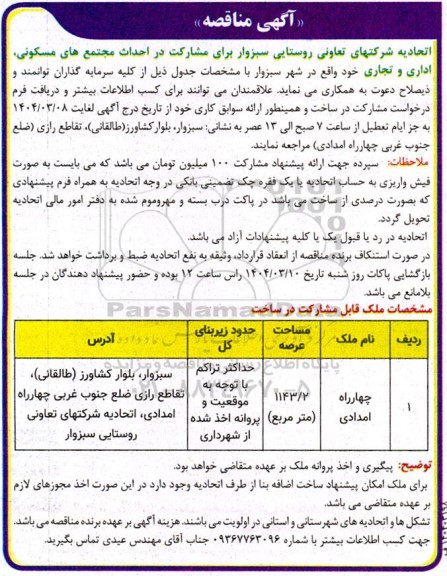 «« آگهی مناقصه »»
اتحادیه شرکتهای تعاونی روستایی سبزوار برای مشارکت در احداث مجتمع های مسکونی،
اداری و تجاری خود واقع در شهر سبزوار با مشخصات جدول ذیل از کلیه سرمایه گذاران توانمند و
ذیصلاح دعوت به همکاری می نماید. علاقمندان می توانند برای کسب اطلاعات بیشتر و دریافت فرم
درخواست مشارکت در ساخت و همینطور ارائه سوابق کاری خود از تاریخ درج آگهی لغایت ۱۴۰۴/۰۳/۰۸
به جز ایام تعطیل از ساعت ۷ صبح الی ۱۳ عصر به نشانی: سبزوار، بلوارکشاورز(طالقانی)، تقاطع رازی (ضلع
جنوب غربی چهارراه امدادی) مراجعه نمایند.
ملاحظات: سپرده جهت ارائه پیشنهاد مشارکت ۱۰۰ میلیون تومان می باشد که می بایست به صورت
فیش واریزی به حساب اتحادیه یا یک فقره چک تضمینی بانکی در وجه اتحادیه به همراه فرم پیشنهادی
که بصورت درصدی از ساخت می باشد در پاکت درب بسته و مهروموم شده به دفتر امور مالی اتحادیه
تحویل گردد.
اتحادیه در رد یا قبول یک یا کلیه پیشنهادات آزاد می باشد.
در صورت استنکاف برنده مناقصه از انعقاد قرارداد، وثیقه به نفع اتحادیه ضبط و برداشت خواهد شد. جلسه
بازگشایی پاکات روز شنبه تاریخ ۱۴۰۴/۰۳/۱۰ راس ساعت ۱۲ بوده و حضور پیشنهاد دهندگان در جلسه
بلامانع می باشد.
مشخصات ملک قابل مشارکت در ساخت
ردیف | نام ملک | مساحت عرصه (متر مربع) | حدود زیربنای کل | آدرس
۱ | چهارراه امدادی | ۱۱۴۳/۲ | حداکثر تراکم با توجه به موقعیت و پروانه اخذ شده از شهرداری | سبزوار، بلوار کشاورز (طالقانی)، تقاطع رازی ضلع جنوب غربی چهارراه امدادی، اتحادیه شرکتهای تعاونی روستایی سبزوار
توضیح: پیگیری و اخذ پروانه ملک بر عهده متقاضی خواهد بود.
برای ملک امکان پیشنهاد ساخت اضافه بنا از طرف اتحادیه وجود دارد در این صورت اخذ مجوزهای لازم
بر عهده متقاضی می باشد.
تشکل ها و اتحادیه های شهرستانی و استانی در اولویت می باشند. هزینه آگهی بر عهده برنده مناقصه می باشد.
جهت کسب اطلاعات بیشتر با شماره ۰۹۳۶۷۷۶۳۰۹۶ جناب آقای مهندس عیدی تماس بگیرید.